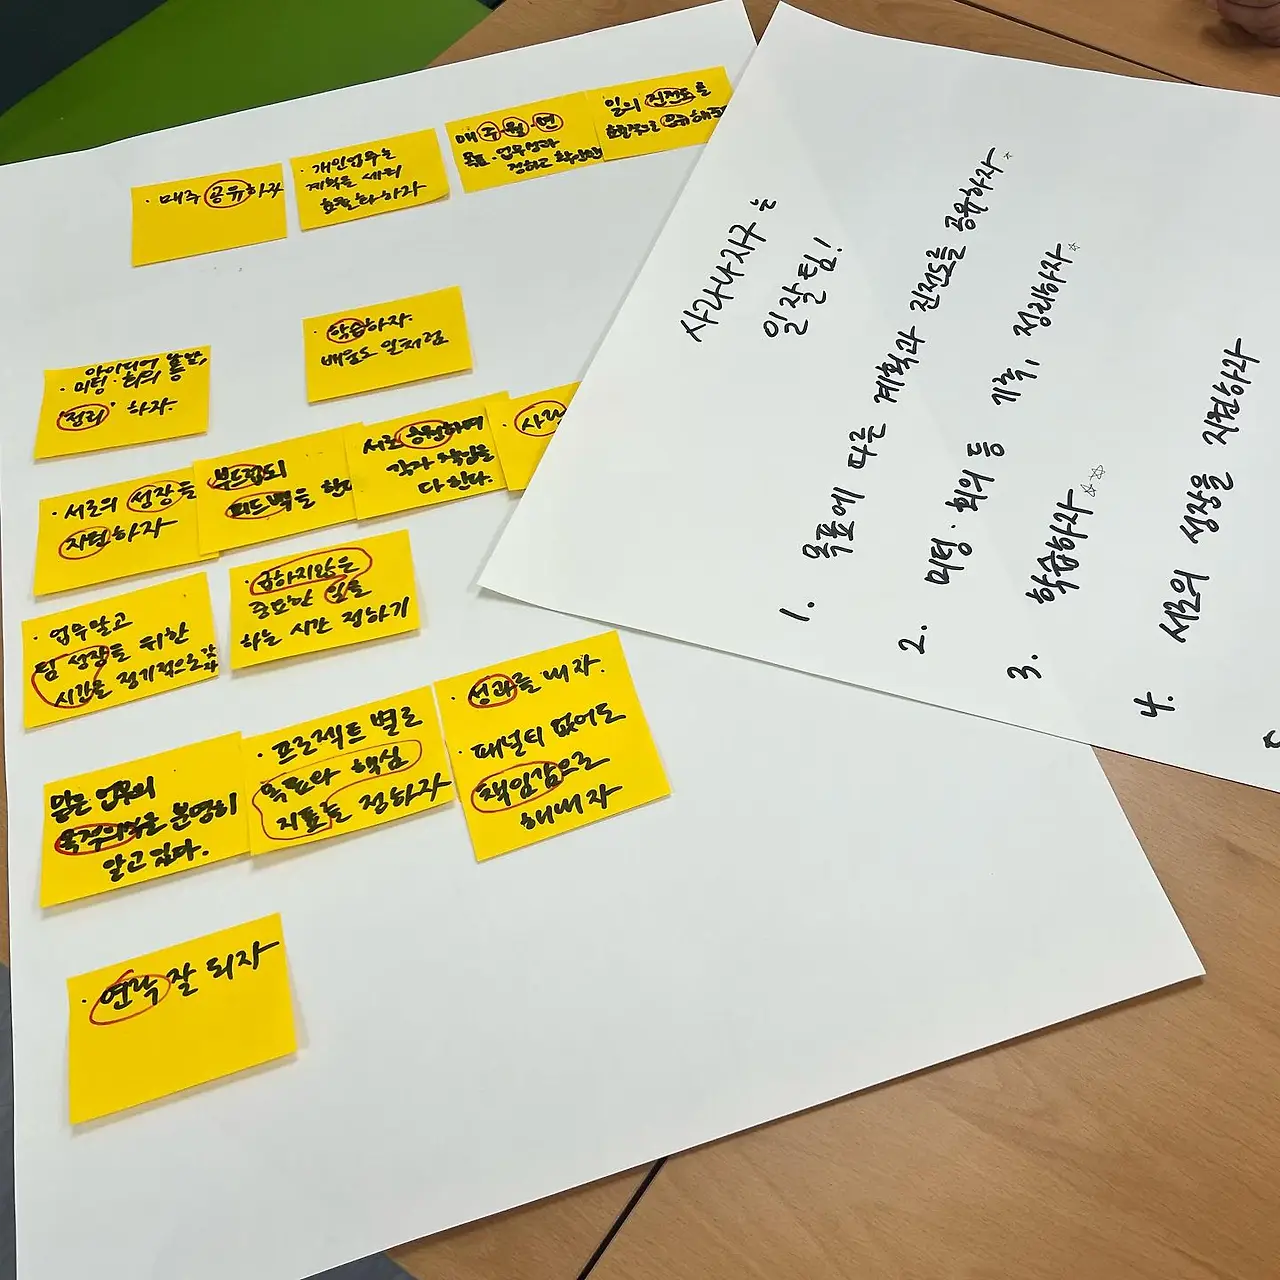 · 매주 공유하자
· 개인업무는
계획을 세워
효율화하자
매 주·월·연
목표·업무성과
정하고 확인한
일의 진전도를
효율적으로 공유해
· 학습하자.
배움도 일처럼
아이디어
· 미팅·회의 등,
"정리" 하자.
· 서로의 성장을
지원하자
부드럽되
피드백을 한다
서로 응원하며
각자 책임을
다 한다.
· 사랑
· 업무말고
팀 성장을 위한
시간을 정기적으로 갖자
· 급하지않은
중요한 일을
하는 시간 정하기
맡은 업무의
목적의식을 분명히
알고 있다.
· 프로젝트 별로
목표와 핵심
지표를 정하자
· 성과를 내자.
· 패널티 없어도
책임감으로
해내자
· 연락 잘 되자
사라나지구는
일잘팀!
1. 목표에 따른 계획과 진전도를 공유하자 ☆
2. 미팅·회의 등 기록, 정리하자 ☆
3. 학습하자 ☆☆
4. 서로의 성장을 지원하자